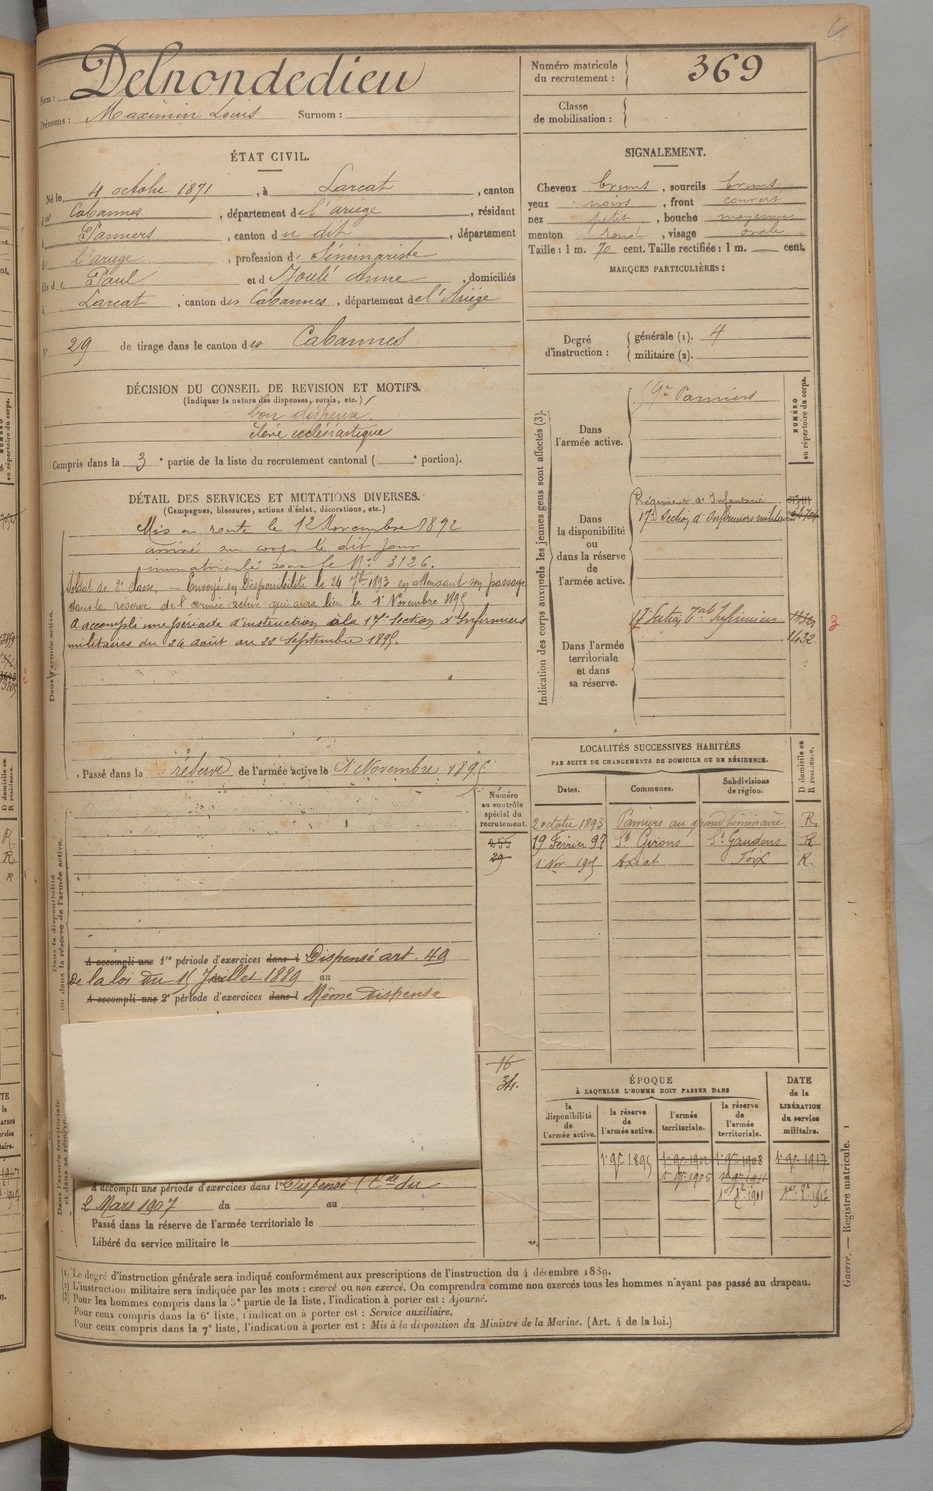 Nom : Delnondedieu
Prénoms : Maximin Louis Surnom :
Numéro matricule du recrutement : 369
Classe de mobilisation :
ÉTAT CIVIL.
Né le 4 octobre 1871, à Larcat, canton
des Cabannes, département de l'ariège, résidant
à Pamiers, canton du dit, département
d l'ariège, profession de Séminariste
fils de Paul et d Joulé Anne, domiciliés
à Larcat, canton des Cabannes, département de l'Ariège
N° 29 de tirage dans le canton des Cabannes
DÉCISION DU CONSEIL DE REVISION ET MOTIFS.
(Indiquer la nature des dispenses, sursis, etc.)
bon dispensé
élève ecclésiastique
Compris dans la 3e partie de la liste du recrutement cantonal ( e portion).
DÉTAIL DES SERVICES ET MUTATIONS DIVERSES.
(Campagnes, blessures, actions d'éclat, décorations, etc.)
Dans l'armée active.
Mis en route le 12 Novembre 1892
arrivé au corps le dit jour
immatriculé sous le N° 3126.
Soldat de 2e classe, — Envoyé en Disponibilité le 24 7bre 1893 en attendant son passage
dans la réserve de l'armée active qui aura lieu le 1er Novembre 1895
A accompli une période d'instruction à la 17e Section d'Infirmiers
militaires du 26 août au 22 Septembre 1895.
Passé dans la réserve de l'armée active le 1 Novembre 1895
Dans la disponibilité ou dans la réserve de l'armée active.
Numéro au contrôle spécial du recrutement.
255
29
A accompli une 1re période d'exercices dans l Dispensé art. 49
de la loi du 15 Juillet 1889 au
A accompli une 2e période d'exercices dans l Même dispense
16
34.
Dans l'armée territoriale et dans sa réserve.
A accompli une période d'exercices dans l Dispensé
2 Mars 1907 du au
Passé dans la réserve de l'armée territoriale le
Libéré du service militaire le
SIGNALEMENT.
Cheveux bruns, sourcils bruns
yeux noirs, front couvert
nez petit, bouche moyenne
menton rond, visage ovale
Taille : 1 m. 70 cent. Taille rectifiée : 1 m. cent.
MARQUES PARTICULIÈRES :
Degré d'instruction : générale (1). 4
militaire (2).
Indication des corps auxquels les jeunes gens sont affectés (3).
NUMÉRO au répertoire du corps.
Dans l'armée active.
59e Pamiers
Dans la disponibilité ou dans la réserve de l'armée active.
Régiment d'Infanterie
17e Section d'Infirmiers militaires
Dans l'armée territoriale et dans sa réserve.
17e Section Tale Infirmiers
1432
3
LOCALITÉS SUCCESSIVES HABITÉES
PAR SUITE DE CHANGEMENTS DE DOMICILE OU DE RÉSIDENCE.
Dates. Communes. Subdivisions de région. D domicile ou R résidence.
2 octobre 1893 Pamiers au grand Séminaire R.
19 Février 97 St Girons St Gaudens R.
1 Nov 1905 Axiat Foix R.
ÉPOQUE
À LAQUELLE L'HOMME DOIT PASSER DANS
la disponibilité de l'armée active.
la réserve de l'armée active.
l'armée territoriale.
la réserve de l'armée territoriale.
DATE de la LIBÉRATION du service militaire.
1er 9bre 1895 1er 9bre 1902 1er 9bre 1908 1er 9bre 1917
1er 9bre 1905 1er 9bre 1911
(1) Le degré d'instruction générale sera indiqué conformément aux prescriptions de l'instruction du 4 décembre 1889.
(2) L'instruction militaire sera indiquée par les mots : exercé ou non exercé. On comprendra comme non exercés tous les hommes n'ayant pas passé au drapeau.
(3) Pour les hommes compris dans la 5e partie de la liste, l'indication à porter est : Ajourné.
Pour ceux compris dans la 6e liste, l'indication à porter est : Service auxiliaire.
Pour ceux compris dans la 7e liste, l'indication à porter est : Mis à la disposition du Ministre de la Marine. (Art. 4 de la loi.)
Guerre. — Registre matricule. 1